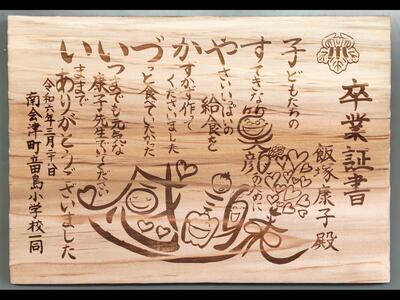 卒業証書
飯塚康子殿
子どもたちの
すてきな笑顔のために
やさいいっぱいの
給食を
かかさず作って
くださいました
づっと食べていたかった
いつまでも元気な
康子先生でいてください
いままで
ありがとうございました
令和六年三月二十一日
南会津町立田島小学校一同
感謝